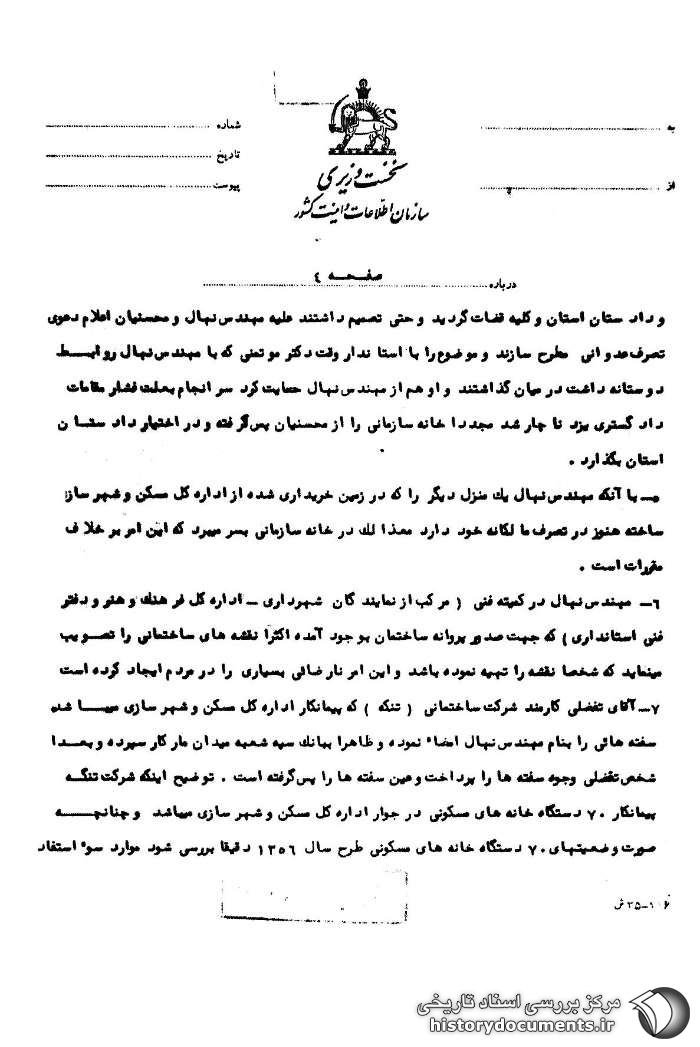 به
شماره
تاریخ
از
پیوست
نخست وزیری
سازمان اطلاعات و امنیت کشور
درباره صفحه ٤
و داد ستان استان و کلیه قضات گردید و حتی تصمیم داشتند علیه مهندس نهال و محسنیان اعلام دعوی
تصرف عدوانی مطرح سازند و موضوع را با استاندار وقت دکتر موتمنی که با مهندس نهال روابط
دوستانه داشت در میان گذاشتند و او هم از مهندس نهال حمایت کرد سر انجام بعلت فشار مقامات
داد گستری یزد نا چار شد مجددا خانه سازمانی را از محسنیان پس گرفته و در اختیار داد ستان
استان بگذارد .
ه- با آنکه مهندس نهال یك منزل دیگر را که در زمین خریداری شده از اداره کل مسکن و شهر سازی
ساخته هنوز در تصرف مالکانه خود دارد معذا لك در خانه سازمانی بسر میبرد که این امر بر خلاف
مقررات است .
٦- مهندس نهال در کمیته فنی ( مرکب از نمایند گان شهرداری - اداره کل فر هنك و هنر و دفتر
فنی استانداری ) که جهت صدور پروانه ساختمان بوجود آمده اکثرا نقشه های ساختمانی را تصویب
مینماید که شخصا نقشه را تهیه نموده باشد و این امر نارضائی بسیاری را در مردم ایجاد کرده است
٧- آقای تفضلی کارمند شرکت ساختمانی ( تنگه ) که پیمانکار اداره کل مسکن و شهر سازی میباشد
سفته هائی را بنام مهندس نهال امضاء نموده و ظاهرا ببانك سپه شعبه میدان مارکار سپرده و بعدا
شخص تفضلی وجوه سفته ها را پرداخت و عین سفته ها را پس گرفته است . توضیح اینکه شرکت تنگه
پیمانکار ٧٠ دستگاه خانه های مسکونی در جوار اداره کل مسکن و شهر سازی میباشد و چنانچه
صورت وضعیتهای ٧٠ دستگاه خانه های مسکونی طرح سال ١٣٥٦ دقیقا بررسی شود موارد سوء استفاد
٣٥-١٠٦ ش
مرکز بررسی اسناد تاریخی
historydocuments.ir